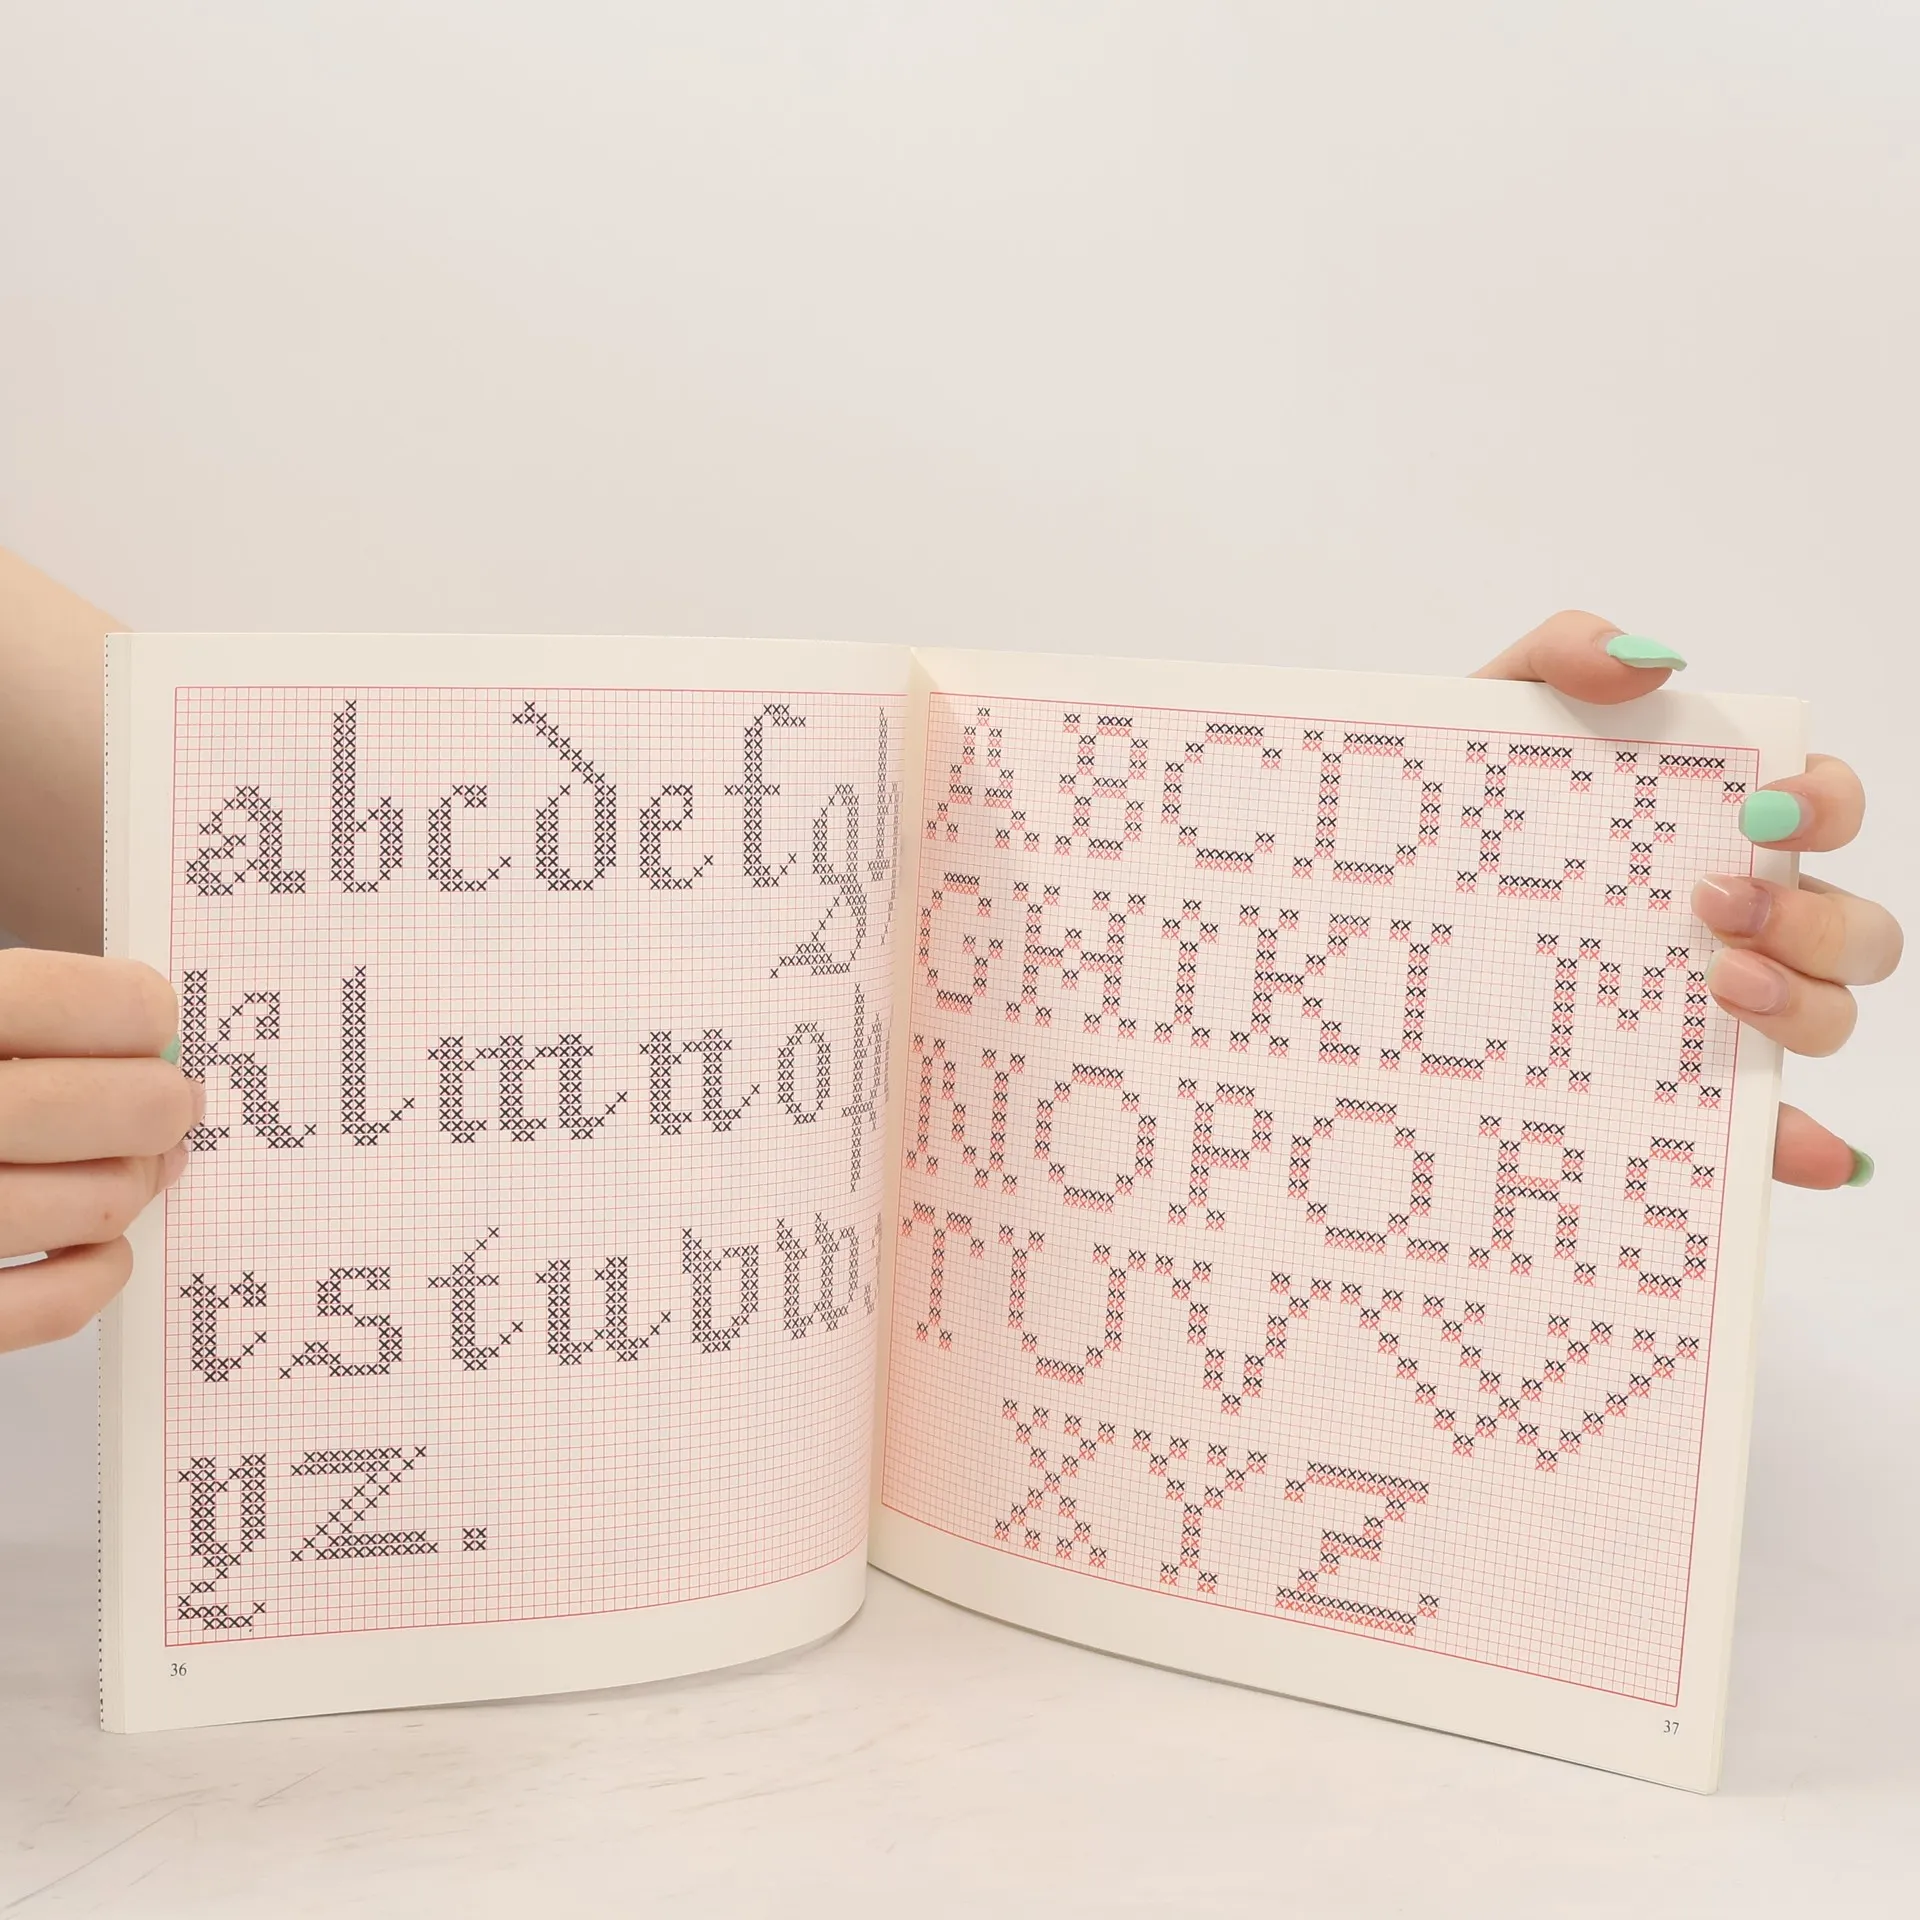 a b c d e f g
k l m n o p
r s t u v w
y z .
36
A B C D E F
G H I K L M
N O P Q R S
T U V W
X Y Z
37